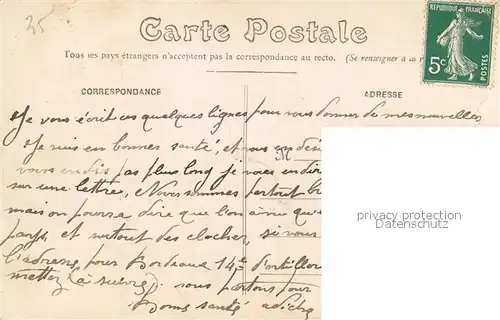 35
Carte Postale
RÉPUBLIQUE FRANÇAISE
5c
POSTES
Tous les pays étrangers n'acceptent pas la correspondance au recto. (Se renseigner à la
CORRESPONDANCE
ADRESSE
Je vous écrit ces quelques lignes pour vous donner de mes nouvelles
Je suis en bonnes santé, et vous en dési
M
vous en dis pas plus long je vous en dir
sur une lettre, Nous sommes partout
mais on pourra dire que l'on a vu
pays, et surtout des clocher, si vous
l'adresse pour Bordeaux 14e d'artiller
mettez (à suivre). nous partons pour
Bonne santé
privacy protection
Datenschutz